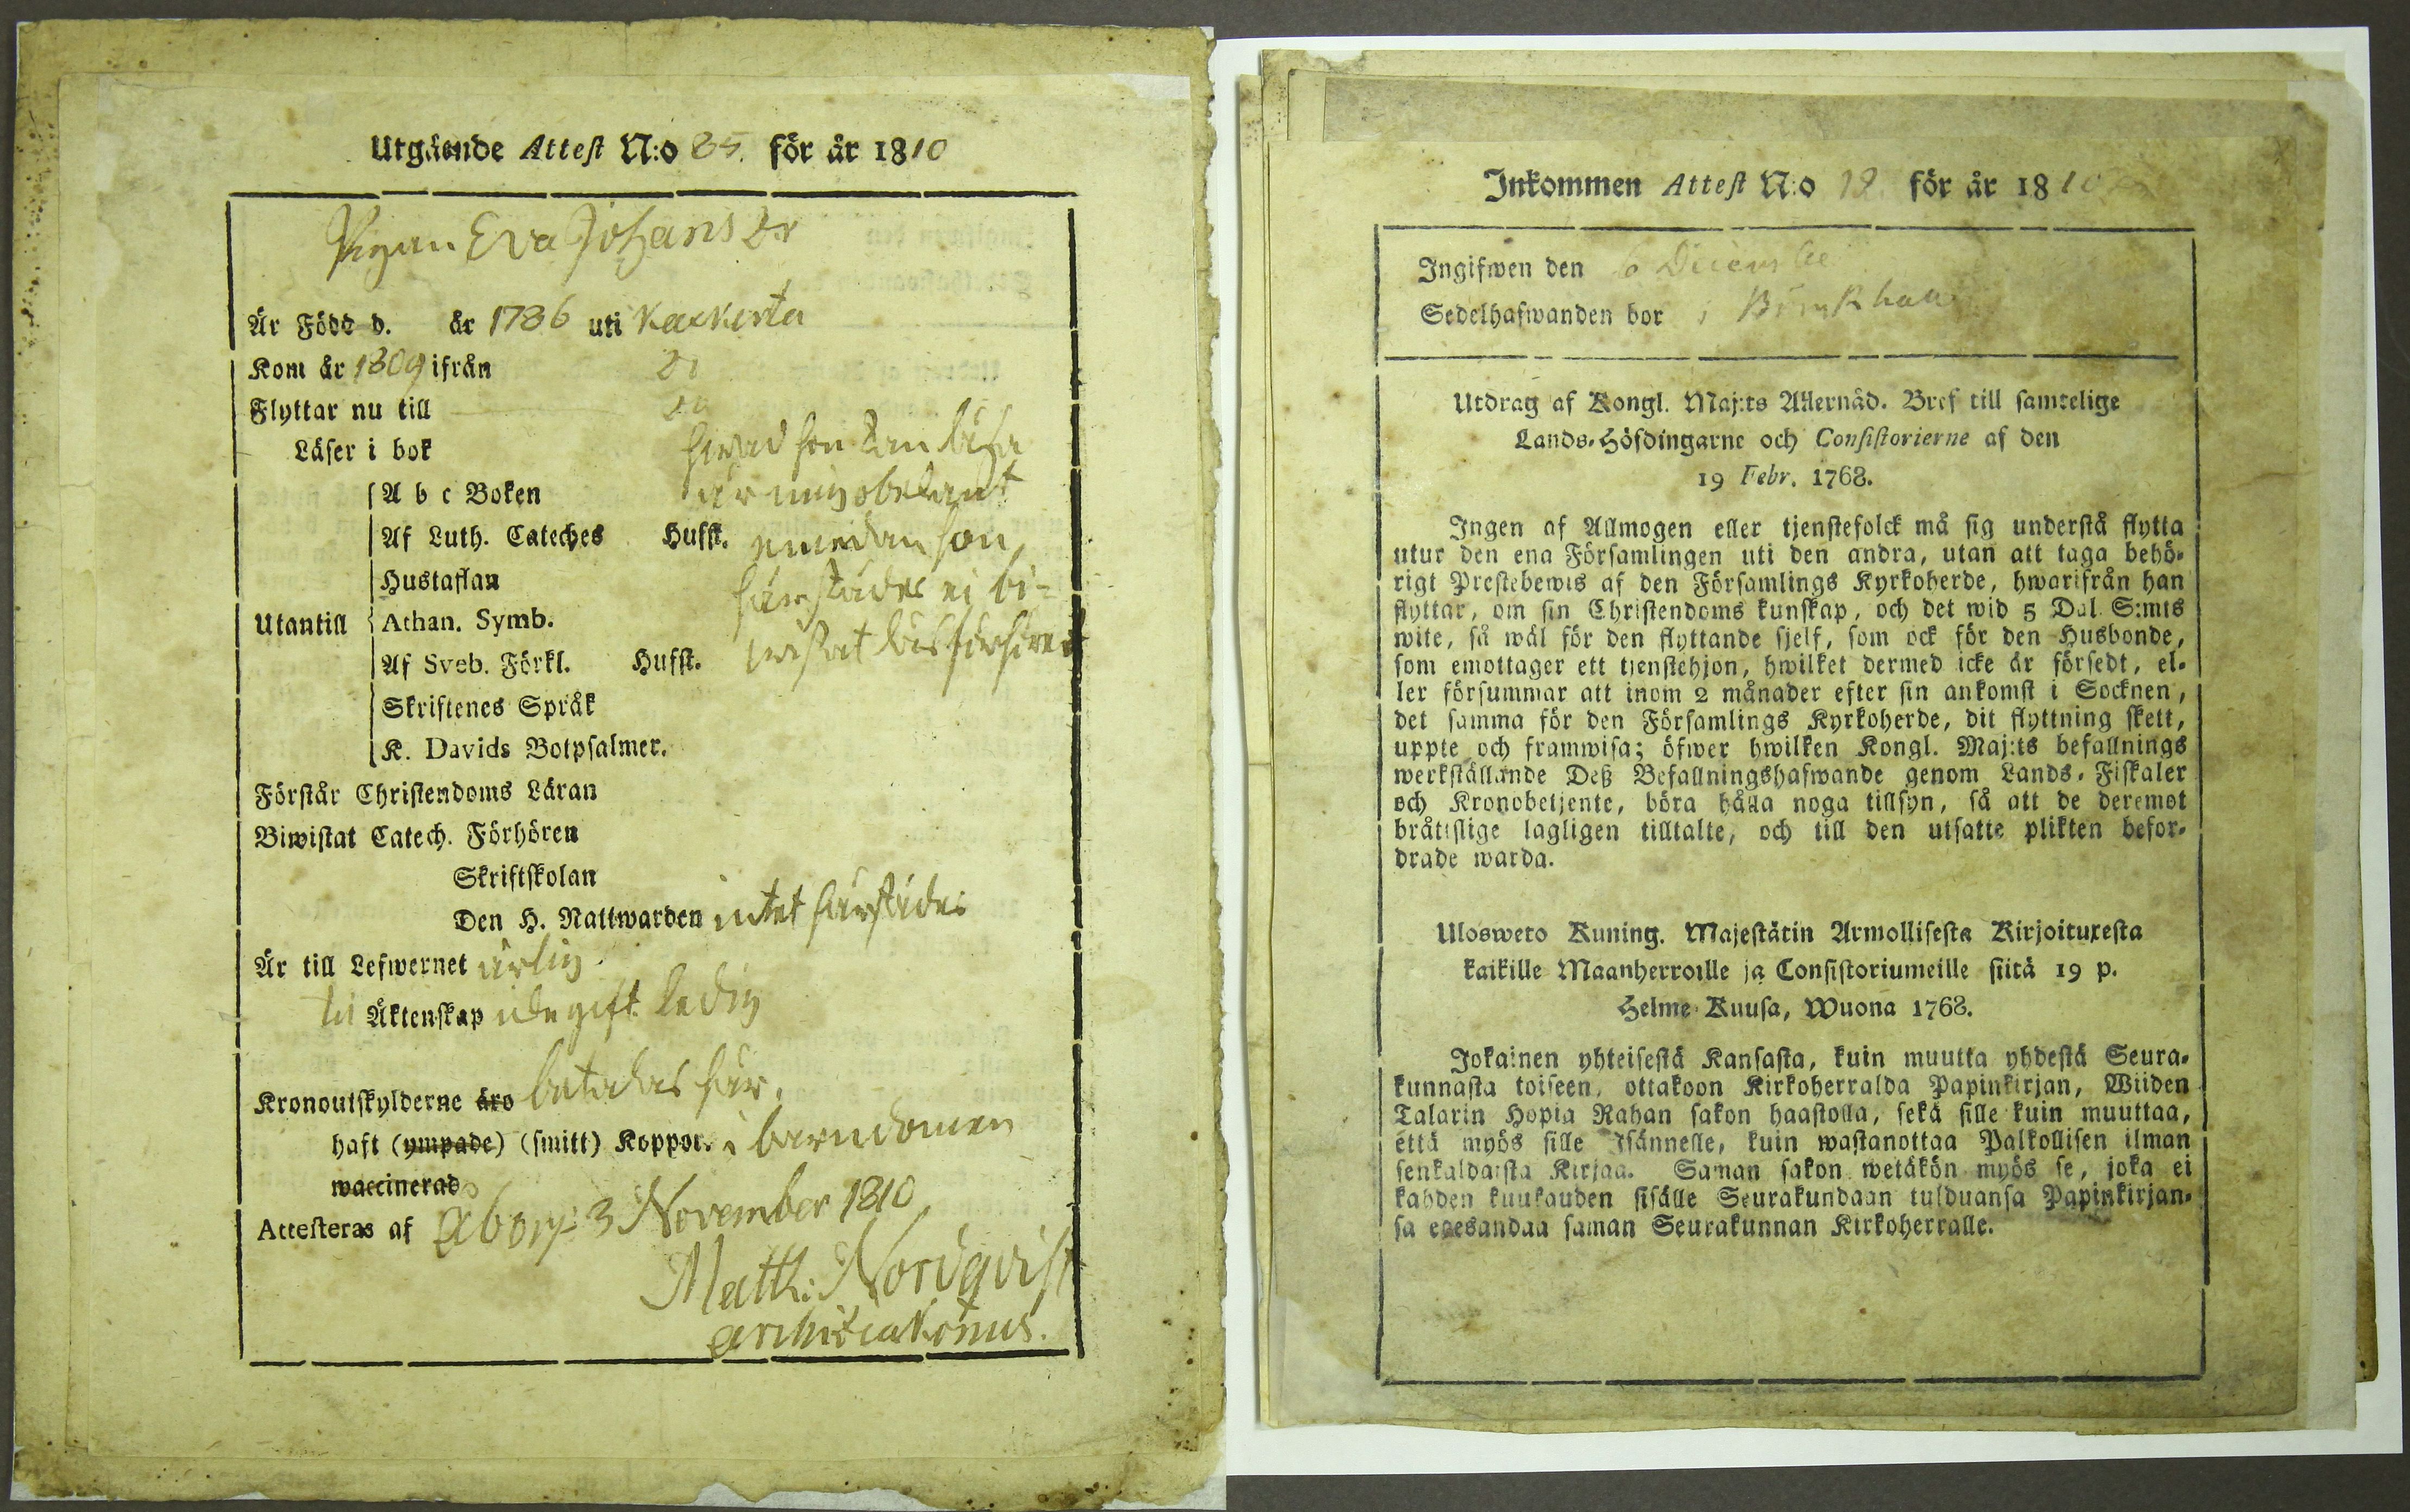 Utgående Attest N:o 85. för år 1810
Pigan Eva Johans Dr
År Född d. år 1786 uti Kackerta
Kom år 1809 ifrån Do
Flyttar nu till Do
Läser i bok hwad hon kan läsa
A b c Boken är mig obekant
Af Luth. Cateches Hufst. emedan hon
Hustaflan härstädes ei bi-
Utantill Athan. Symb.
Af Sveb. Förkl. Hufst. wistat läsförhören
Skriftenes Språk
K. Davids Botpsalmer.
Förstår Christendoms Läran
Biwistat Catech. Förhören
Skriftskolan
Den H. Nattwarden intet härstädes
Är till Lefwernet ärlig.
till Äktenskap icke gift ledig
Kronoutskylderne äro betalas här.
haft (ympade) (smitt) Koppor. i barndomen
waccinerad
Attesteras af Åbo 3 November 1810
Matth: Nordqvist
archidiakonus.
Inkommen Attest N:o 12. för år 1810
Ingifwen den 6 December
Sedelhafwanden bor i
Utdrag af Kongl. Maj:ts Allernåd. Bref till samtelige
Lands-Höfdingarne och Consistorierne af den
19 Febr. 1768.
Ingen af Allmogen eller tjenstefolck må sig understå flytta
utur den ena Församlingen uti den andra, utan att taga behö-
rigt Prestebewis af den Församlings Kyrkoherde, hwarifrån han
flyttar, om sin Christendoms kunskap, och det wid 5 Dal. S:mts
wite, så wäl för den flyttande sjelf, som ock för den Husbonde,
som emottager ett tjenstehjon, hwilket dermed icke är försedt, el-
ler försummar att inom 2 månader efter sin ankomst i Socknen,
det samma för den Församlings Kyrkoherde, dit flyttning skett,
uppte och framwisa; öfwer hwilken Kongl. Maj:ts befallnings
werkställande Deß Befallningshafwande genom Lands-Fiskaler
och Kronobetjente, böra hålla noga tillsyn, så att de deremot
bråtislige lagligen tilltalte, och till den utsatte plikten befor-
drade warda.
Uloswето Kuning. Majestätin Armollisesta Kirjoituxesta
kaikille Maanherroille ja Consistoriumeille siitä 19 p.
Helme-Kuusa, Wuona 1768.
Jokainen yhteisestä Kansasta, kuin muutta yhdestä Seura-
kunnasta toiseen, ottakoon Kirkoherralda Papinkirjan, Wiiden
Talarin Hopia Rahan sakon haastolla, sekä sille kuin muuttaa,
että myös sille Isännelle, kuin wastanottaa Palkollisen ilman
senkaldaista Kirjaa. Saman sakon wetäkön myös se, joka ei
kahden kuukauden sisälle Seurakundaan tulduansa Papinkirjan-
sa edesandaa saman Seurakunnan Kirkoherralle.